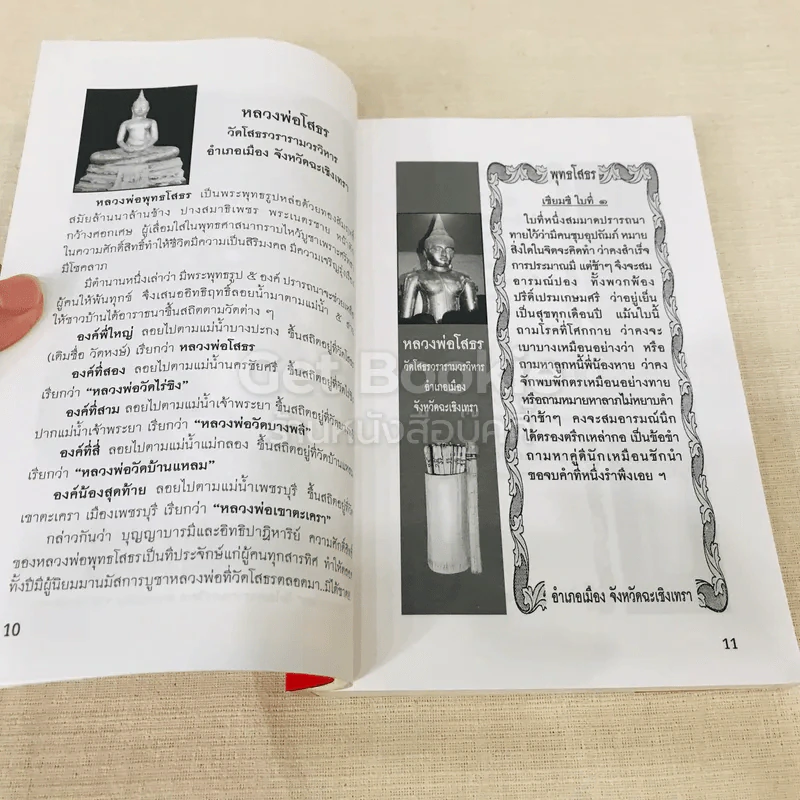 หลวงพ่อโสธร
วัดโสธรวรารามวรวิหาร
อำเภอเมือง จังหวัดฉะเชิงเทรา
หลวงพ่อพุทธโสธร เป็นพระพุทธรูปหล่อด้วยทอง
สมัยล้านนาล้านช้าง ปางสมาธิเพชร พระเนตรชาย
กว้างศอกเศษ ผู้เลื่อมใสในพุทธศาสนากราบไหว้บูชาเพราะศรัทธา
ในความศักดิ์สิทธิ์ทำให้ชีวิตมีความเป็นสิริมงคล มีความเจริญรุ่งเรือง
มีโชคลาภ
มีตำนานหนึ่งเล่าว่า มีพระพุทธรูป ๕ องค์ ปรารถนาจะช่วยเหลือ
ผู้คนให้พ้นทุกข์ จึงเสนออิทธิฤทธิ์ลอยน้ำมาตามแม่น้ำ ๕
ให้ชาวบ้านได้อาราธนาขึ้นสถิตตามวัดต่าง ๆ
องค์พี่ใหญ่ ลอยไปตามแม่น้ำบางปะกง ขึ้นสถิตอยู่ที่วัดโสธร
(เดิมชื่อ วัดหงษ์) เรียกว่า หลวงพ่อโสธร
องค์ที่สอง ลอยไปตามแม่น้ำนครชัยศรี ขึ้นสถิตอยู่ที่วัดไร่ขิง
เรียกว่า “หลวงพ่อวัดไร่ขิง”
องค์ที่สาม ลอยไปตามแม่น้ำเจ้าพระยา ขึ้นสถิตอยู่ที่วัด
ปากแม่น้ำเจ้าพระยา เรียกว่า “หลวงพ่อวัดบางพลี”
องค์ที่สี่ ลอยไปตามแม่น้ำแม่กลอง ขึ้นสถิตอยู่ที่วัดบ้านแหลม
เรียกว่า “หลวงพ่อวัดบ้านแหลม”
องค์น้องสุดท้าย ลอยไปตามแม่น้ำเพชรบุรี ขึ้นสถิตอยู่ที่วัด
เขาตะเครา เมืองเพชรบุรี เรียกว่า “หลวงพ่อเขาตะเครา”
กล่าวกันว่า บุญญาบารมีและอิทธิปาฏิหาริย์ ความศักดิ์สิทธิ์
ของหลวงพ่อพุทธโสธรเป็นที่ประจักษ์แก่ผู้คนทุกสารทิศ ทำให้ตลอด
ทั้งปีมีผู้นิยมมานมัสการบูชาหลวงพ่อที่วัดโสธรตลอดมา..มิได้ขาด
10
หลวงพ่อโสธร
วัดโสธรวรารามวรวิหาร
อำเภอเมือง
จังหวัดฉะเชิงเทรา
พุทธโสธร
เซียมซี ใบที่ ๑
ใบที่หนึ่งสมมาดปรารถนา
ทายไว้ว่ามีคนชุบอุปถัมภ์ หมาย
สิ่งใดในจิตจะคิดทำ ว่าคงสำเร็จ
การประมาณมี แต่ช้าๆ จึงจะสม
อารมณ์ปอง ทั้งพวกพ้อง
ปรีดิ์เปรมเกษมศรี ว่าอยู่เย็น
เป็นสุขทุกเดือนปี แม้นใบนี้
ถามโรคที่โศกกาย ว่าคงจะ
เบาบางเหมือนอย่างว่า หรือ
ถามหาลูกหนี้พี่น้องหาย ว่าคง
จักพบพักตรเหมือนอย่างทาย
หรือถามหมายหาลาภไม่หยาบคำ
ว่าช้าๆ คงจะสมอารมณ์นึก
ได้ตรองตรึกเหล่ากอ เป็นข้อขำ
ถามหาคู่ดีนักเหมือนชักนำ
ขอจบคำที่หนึ่งรำพึงเอย ฯ
อำเภอเมือง จังหวัดฉะเชิงเทรา
11
Get Bookie
ร้านหนังสือบุ๊คกี้